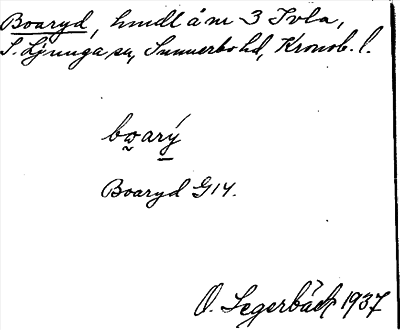 Boaryd, hmdl å nr 3 Tvla,
S. Ljunga sn, Sunnerbo hd, Kronob. l.
bw̰arý
Boaryd G14.
O. Segerbäck 1937